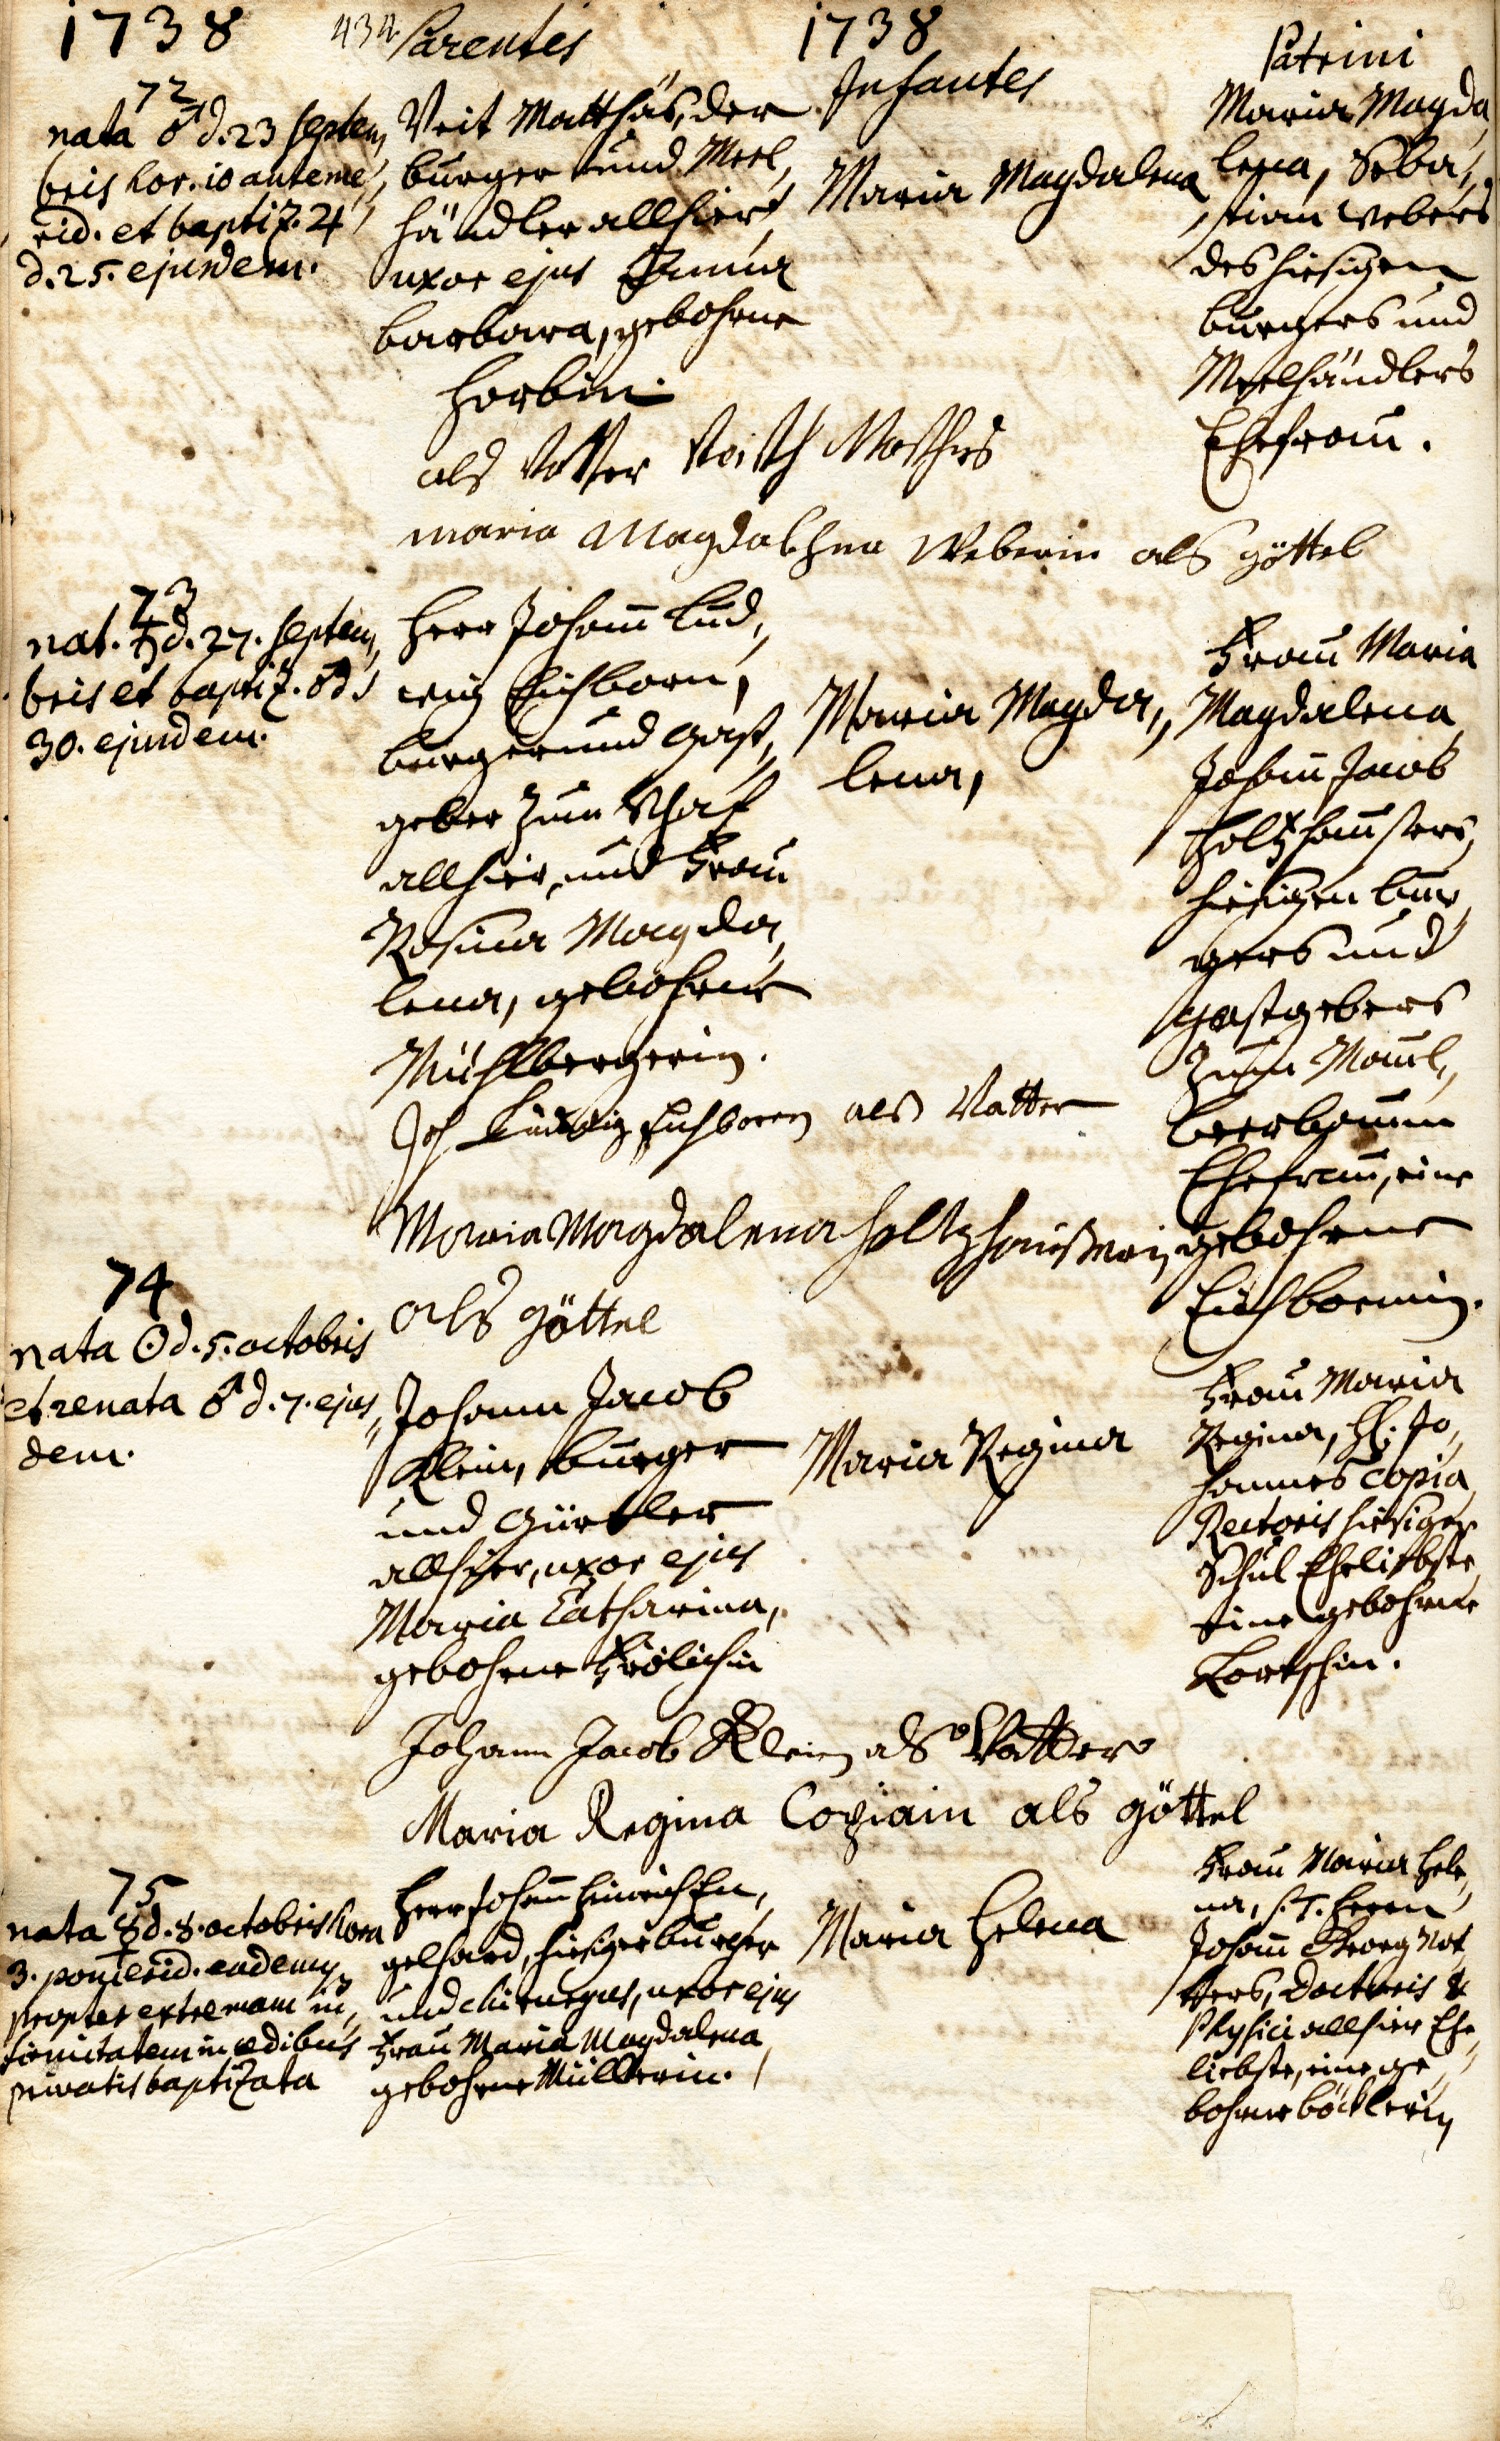 1738 432 Parentes 1738 Infantes Patrini
72
nata ♂ d. 23 septem,
bris hor. 10 anteme,
rid. et baptiz. ♃
d. 25. ejusdem.
Veit Matthäs, der
burger und Meel,
händler allhier,
uxor ejus Anna
barbara, gebohrne
Horbin.
Maria Magdalena
Maria Magda,
lena, Seba,
stian Webers
des hiesigen
burgers und
Meelhändlers
Ehefrau.
als Vatter Veith Mathes
maria Magdalehna Weberin als göttel
73
nat. ♄ d. 27. septem,
bris et baptiz. ♂ d.
30. ejusdem.
Herr Johann Lud,
wig Eichborn,
burger und Gast,
geber zum Schaf
allhier, und Frau
Rosina Magda,
lena, gebohrne
Mühlbergerin.
Maria Magda,
lena,
Frau Maria
Magdalena
Johann Jacob
Holtzhaussers,
hiesigen bur,
gers und
Gastgebers
zum Maul,
beerbaum
Ehefrau, eine
gebohrne
Eichbornin.
Joh Ludwig Eichboren als Vatter
Maria Magdalena Holtzhausserin
als göttel
74
nata ☉ d. 5. octobris
et renata ♂ d. 7. ejus,
dem.
Johann Jacob
Klein, burger
und Gürtler
allhier, uxor ejus
Maria Catharina,
gebohrne Frölichin
Maria Regina
Frau Maria
Regina, H. Jo,
hannes Copia
Rectoris hiesiger
Schul Eheliebste
eine gebohrne
Lortschin.
Johann Jacob Klein als Vatter
Maria Regina Copiain als göttel
75
nata ☿ d. 8. octobris hora
3. pomerid. eademq
propter extremam in,
firmitatem in ædibus
privatis baptizata
Herr Johann Heinrich En,
gelhard, hiesiger burger
und chirurgus, uxor ejus
Frau Maria Magdalena
gebohrne Müllerin.
Maria Helena
Frau Maria Hele,
na, S. T. Herrn
Johann Georg Not
ters, Doctoris &
Physici allhier Ehe,
liebste, eine ge,
bohrne böcklerin